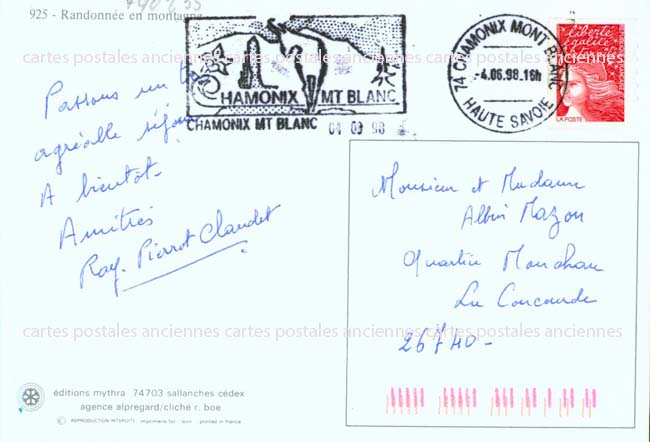 925 - Randonnée en montagne
CHAMONIX MT BLANC
CHAMONIX MT BLANC 04 09 98
74 CHAMONIX MONT BLANC
-4.06.98.16h
HAUTE SAVOIE
liberté
égalité
LA POSTE
cartes postales anciennes cartes postales anciennes cartes postales anciennes
Passons un
agréable séjour
A bientôt-
Amitiés
Ray. Pierrot Claudet
Monsieur et Madame
Albin Mazon
Quartier
La Coucourde
26740-
cartes postales anciennes cartes postales anciennes cartes postales anciennes
éditions mythra 74703 sallanches cédex
agence alpregard/cliché r. boe
© REPRODUCTION INTERDITE imprimerie fot lyon printed in france